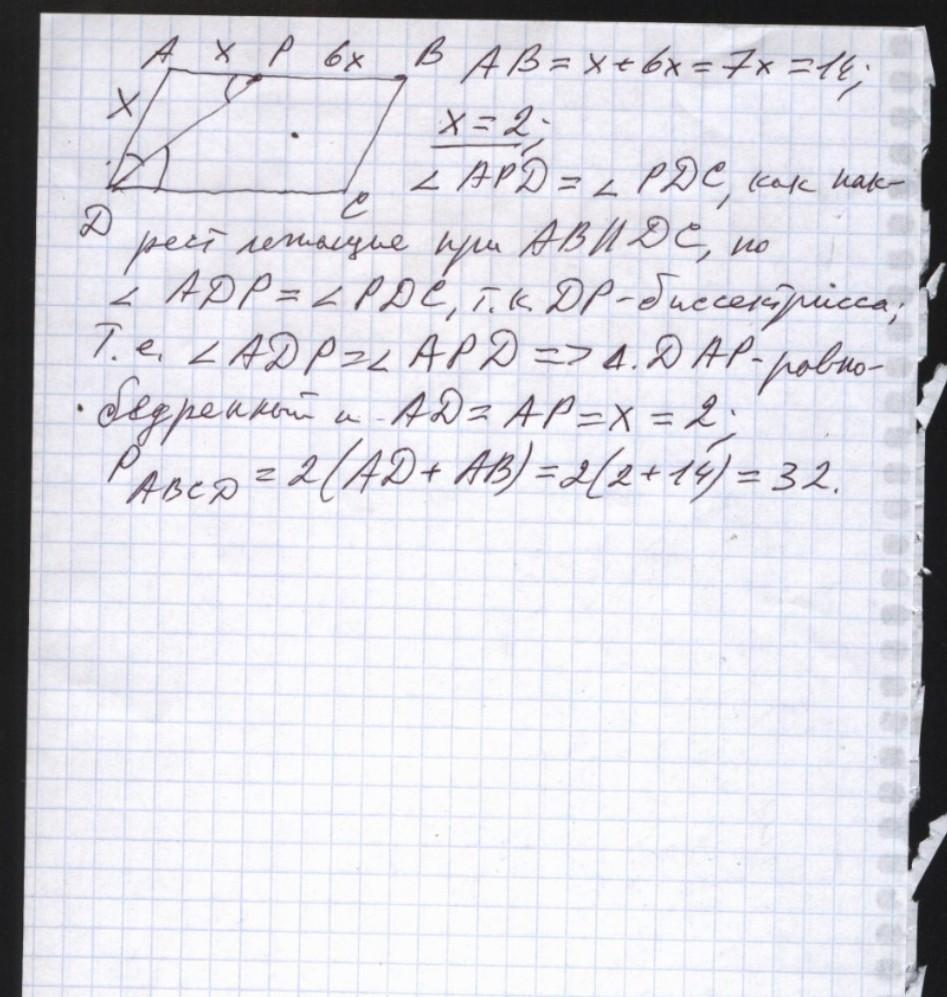 A x P 6x B AB = x + 6x = 7x = 14;
x
x = 2;
∠ APD = ∠ PDC, как нак-
D C
рест лежащие при AB ∥ DC, но
∠ ADP = ∠ PDC, т.к. DP - биссектрисса;
Т.е. ∠ ADP = ∠ APD => Δ. DAP - равно-
бедренный и AD = AP = x = 2;
P ABCD = 2(AD + AB) = 2(2 + 14) = 32.